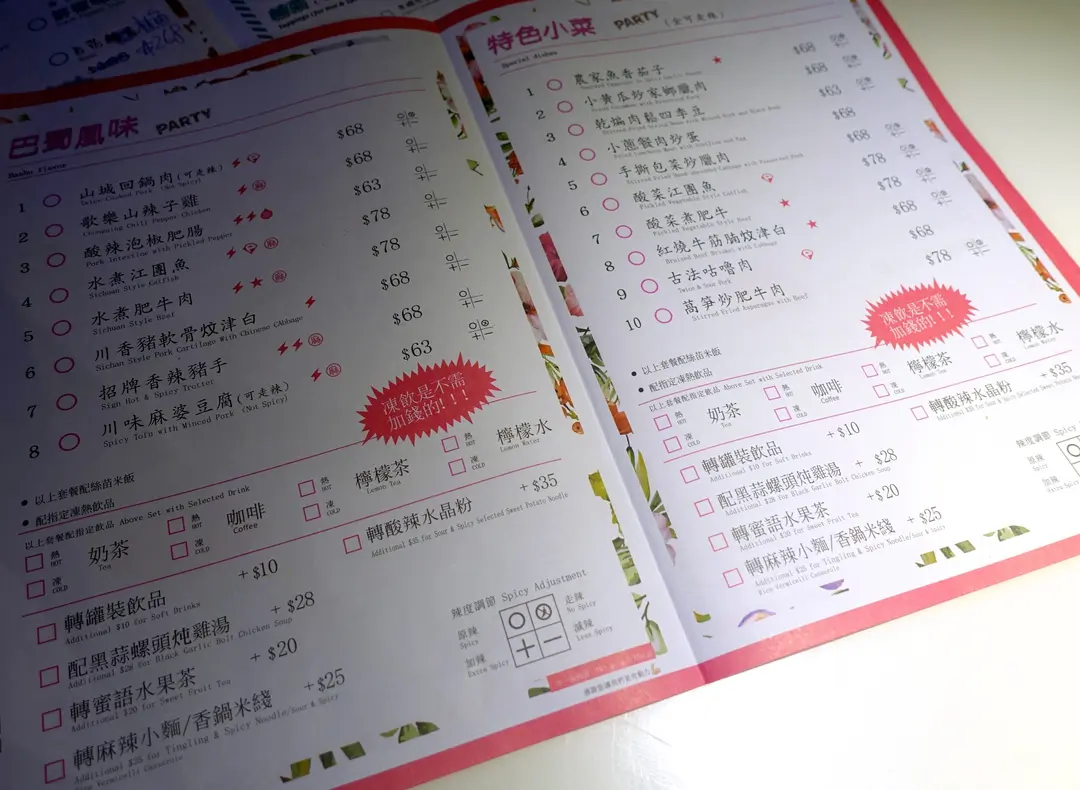 巴蜀風味 PARTY
Bashu flavor
1 山城回鍋肉(可走辣) $68
Twice Cooked Pork (Not Spicy)
2 歌樂山辣子雞 $68
Chongqing Chili Pepper Chicken
3 酸辣泡椒肥腸 $63
Pork Intestine with Pickled Pepper
4 水煮江團魚 $78
Sichuan Style Catfish
5 水煮肥牛肉 $78
Sichuan Style Beef
6 川香豬軟骨炆津白 $68
Sichan Style Pork Cartilogo With Chinese CAbbage
7 招牌香辣豬手 $68
Sign Hot & Spicy Trotter
8 川味麻婆豆腐(可走辣) $63
Spicy Tofu with Minced Pork (Not Spicy)
凍飲是不需
加錢的!!!
● 以上套餐配絲苗米飯
● 配指定凍熱飲品
以上套餐配指定飲品 Above Set with Selected Drink
熱 HOT
凍 COLD
奶茶
Tea
熱 HOT
凍 COLD
咖啡
Coffee
熱 HOT
凍 COLD
檸檬茶
Lemon Tea
熱 HOT
凍 COLD
檸檬水
Lemon Water
轉罐裝飲品 +$10
Additional $10 for Soft Drinks
轉酸辣水晶粉 +$35
Additional $35 for Sour & Spicy Selected Sweet Potato Noodle
配黑蒜螺頭炖雞湯 +$28
Additional $28 for Black Garlic Bolt Chicken Soup
轉蜜語水果茶 +$20
Additional $20 for Sweet Fruit Tea
轉麻辣小麵/香鍋米綫 +$25
Additional $25 for Tingling & Spicy Noodle/Sour & Spicy
Rice Vermicelli Casserole
辣度調節 Spicy Adjustment
原辣
Spicy
走辣
No Spicy
加辣
Extra Spicy
減辣
Less Spicy
特色小菜 PARTY (全可走辣)
Special dishes
1 農家魚香茄子 $68
2 小黃瓜炒家鄉臘肉 $68
3 乾煸肉鬆四季豆 $63
4 小蔥餐肉炒蛋 $68
5 手撕包菜炒臘肉 $68
6 酸菜江團魚 $78
Pickled Vegetable Style Catfish
7 酸菜煮肥牛 $78
Pickled Vegetable Style Beef
8 紅燒牛筋腩炆津白 $68
Braised Beef Brisket with Cabbage
9 古法咕嚕肉 $68
Twice & Sour Pork
10 萵笋炒肥牛肉 $78
Stirred Fried Asparagus with Beef
凍飲是不需
加錢的!!!
● 以上套餐配絲苗米飯
● 配指定凍熱飲品
以上套餐配指定飲品 Above Set with Selected Drink
熱 HOT
凍 COLD
奶茶
Tea
熱 HOT
凍 COLD
咖啡
Coffee
熱 HOT
凍 COLD
檸檬茶
Lemon Tea
熱 HOT
凍 COLD
檸檬水
Lemon Water
轉罐裝飲品 +$10
Additional $10 for Soft Drinks
轉酸辣水晶粉 +$35
配黑蒜螺頭炖雞湯 +$28
Additional $28 for Black Garlic Bolt Chicken Soup
轉蜜語水果茶 +$20
Additional $20 for Sweet Fruit Tea
轉麻辣小麵/香鍋米綫 +$25
Additional $25 for Tingling & Spicy Noodle/Sour & Spicy
Rice Vermicelli Casserole
辣度調節 Spicy
原辣
Spicy
加辣
Extra Spicy